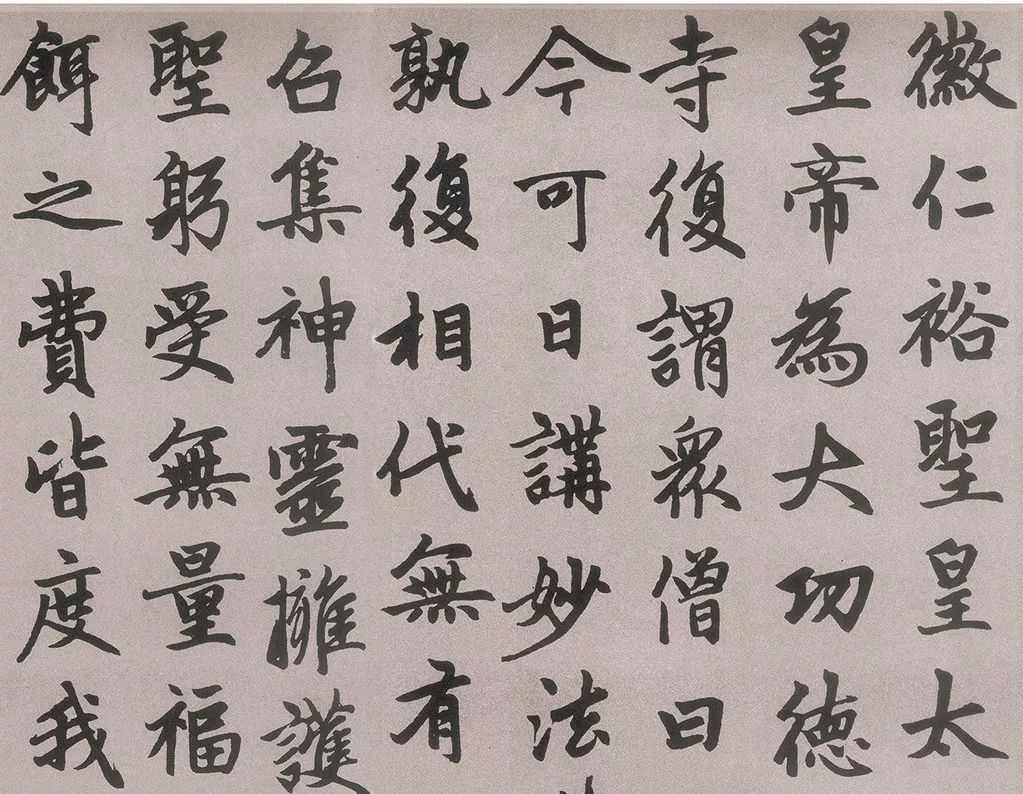 徽仁裕聖皇太
皇帝為大功德
寺復謂眾僧曰
今可日講妙法
孰復相代無有
召集神靈擁護
聖躬受無量福
餌之費皆度我